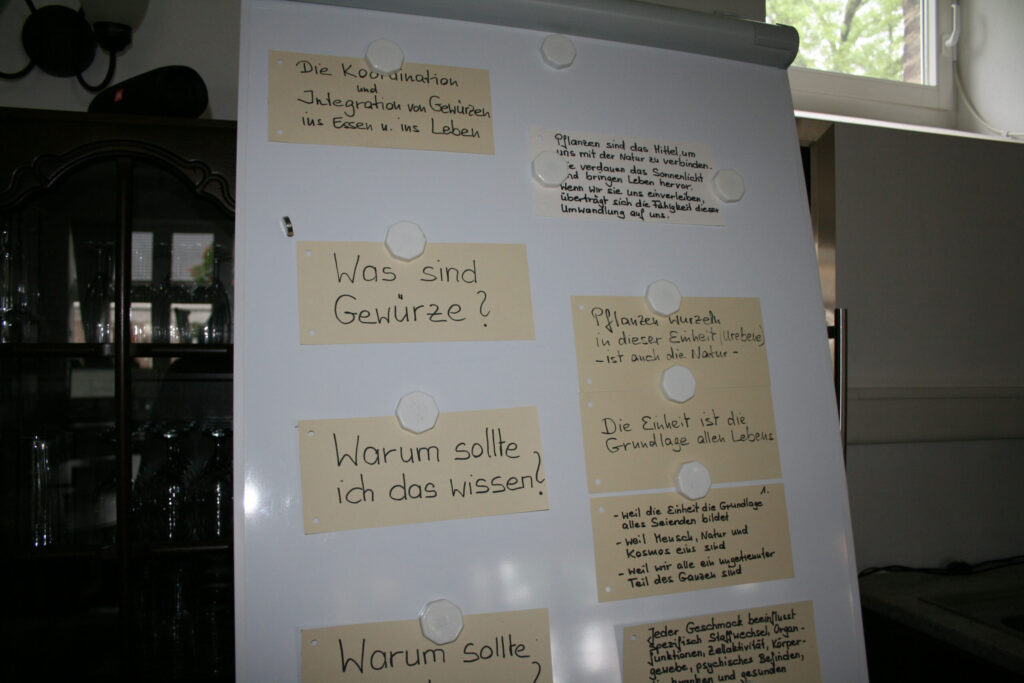 Die Koordination
und
Integration von Gewürzen
ins Essen u. ins Leben
Pflanzen sind das Mittel, um
uns mit der Natur zu verbinden.
Sie verdauen das Sonnenlicht
und bringen Leben hervor.
Wenn wir sie uns einverleiben,
überträgt sich die Fähigkeit dieser
Umwandlung auf uns.
Was sind
Gewürze?
Pflanzen wurzeln
in dieser Einheit (Urebene)
- ist auch die Natur -
Die Einheit ist die
Grundlage allen Lebens
Warum sollte
ich das wissen?
1.
- weil die Einheit die Grundlage
alles Seienden bildet
- weil Mensch, Natur und
Kosmos eins sind
- weil wir alle ein ungetrennter
Teil des Ganzen sind
Warum sollte
Jeder Geschmack beeinflusst
spezifisch Stoffwechsel, Organ-
funktionen, Zellaktivität, Körper-
gewebe, psychisches Befinden,
kranken und gesunden